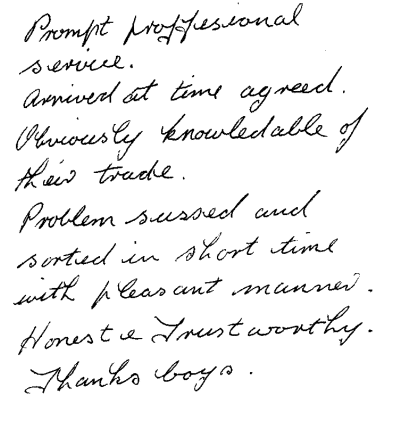 Prompt proffesional
service.
Arrived at time agreed.
Obviously knowledable of
their trade.
Problem sussed and
sorted in short time
with pleasant manner.
Honest & Trustworthy.
Thanks boys.